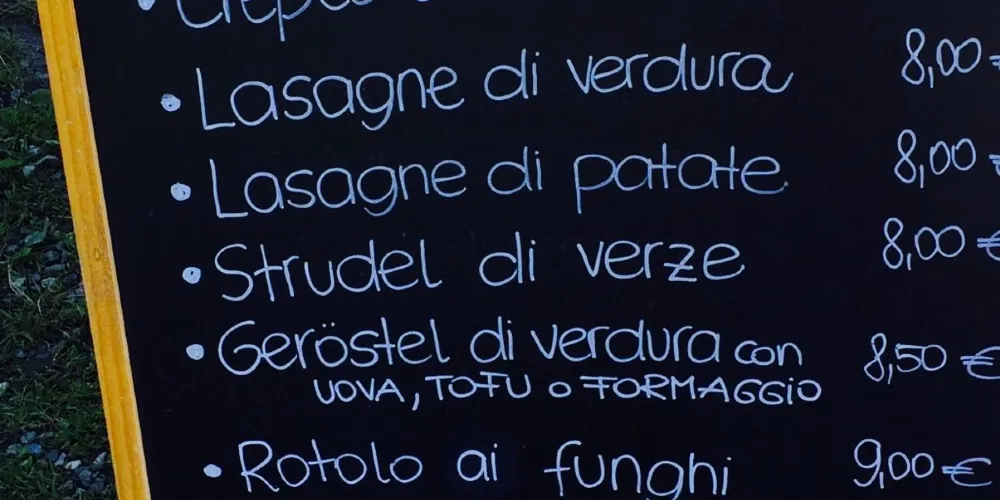 • Lasagne di verdura 8,00
• Lasagne di patate 8,00
• Strudel di verze 8,00 €
• Geröstel di verdura con 8,50 €
UOVA, TOFU o FORMAGGIO
• Rotolo ai funghi 9,00 €